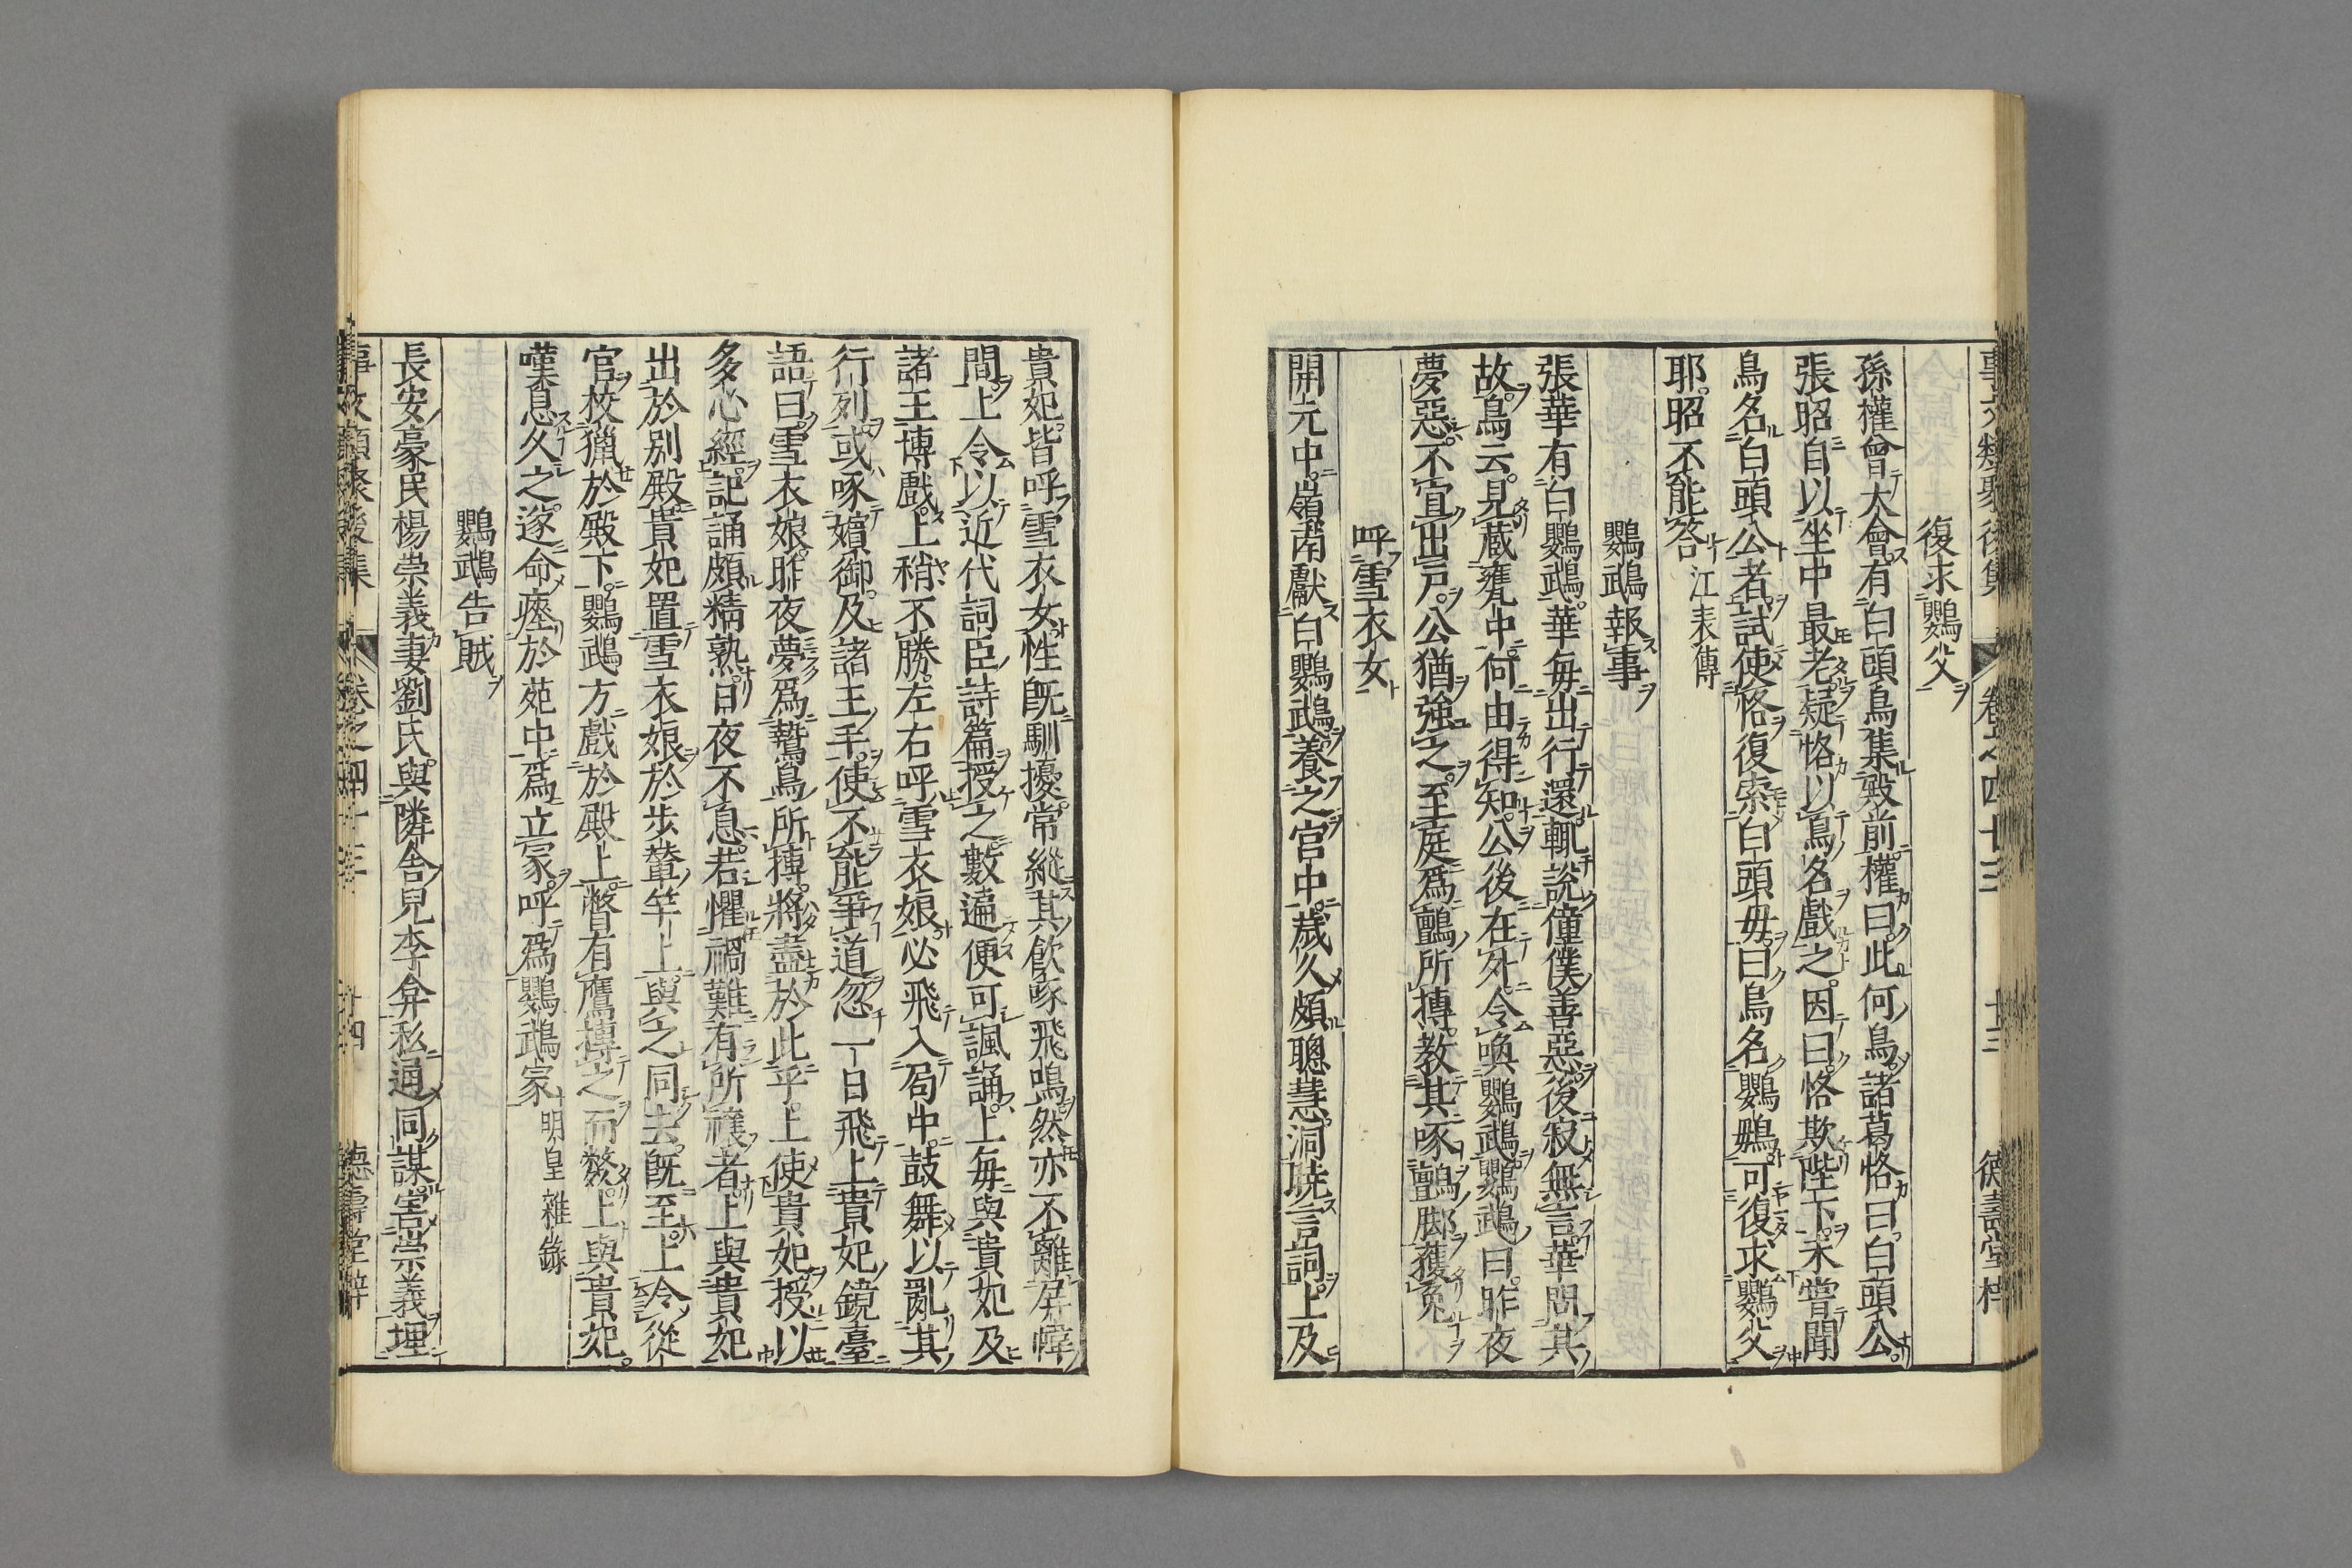 事文類聚後集 卷之四十三 廿三 德壽堂梓
復求鸚父
孫權曾大會有白頭鳥集殿前權曰此何鳥諸葛恪曰白頭公
張昭自以坐中最老疑恪以鳥名戲之因曰恪欺陛下未嘗聞
鳥名白頭公者試使恪復索白頭母曰鳥名鸚鵡可復求鸚父
耶昭不能答江表傳
鸚鵡報事
張華有白鸚鵡華每出行還輒說僮僕善惡後寂無言華問其
故鳥云見蔵甕中何由得知公後在外令喚鸚鵡鸚鵡曰昨夜
夢惡不宜出戸公猶強之至庭爲鸇所搏教其啄鸇脚獲免
呼雪衣女
開元中嶺南獻白鸚鵡養之宮中歲久頗聰慧洞曉言詞上及
貴妃皆呼雪衣女性旣馴擾常縱其飲啄飛鳴然亦不離屏幃
間上令以近代詞臣詩篇授之數遍便可諷誦上每與貴妃及
諸王博戲上稍不勝左右呼雪衣娘必飛入局中鼓舞以亂其
行列或啄嬪御及諸王手使不能爭道忽一日飛上貴妃鏡臺
語曰雪衣娘昨夜夢爲鷙鳥所搏將盡於此乎上使貴妃授以
多心經記誦頗精熟日夜不息若懼禍難有所禳者上與貴妃
出於別殿貴妃置雪衣娘於步輦竿上與之同去旣至上令從
官校獵於殿下鸚鵡方戲於殿上瞥有鷹摶之而斃上與貴妃
嘆息久之遂命瘞於苑中爲立冢呼爲鸚鵡冢明皇雜錄
鸚鵡告賊
長安豪民楊崇義妻劉氏與隣舎兒李弇私通同謀害崇義埋
事文類聚後集 卷之四十三 廿四 德壽堂梓